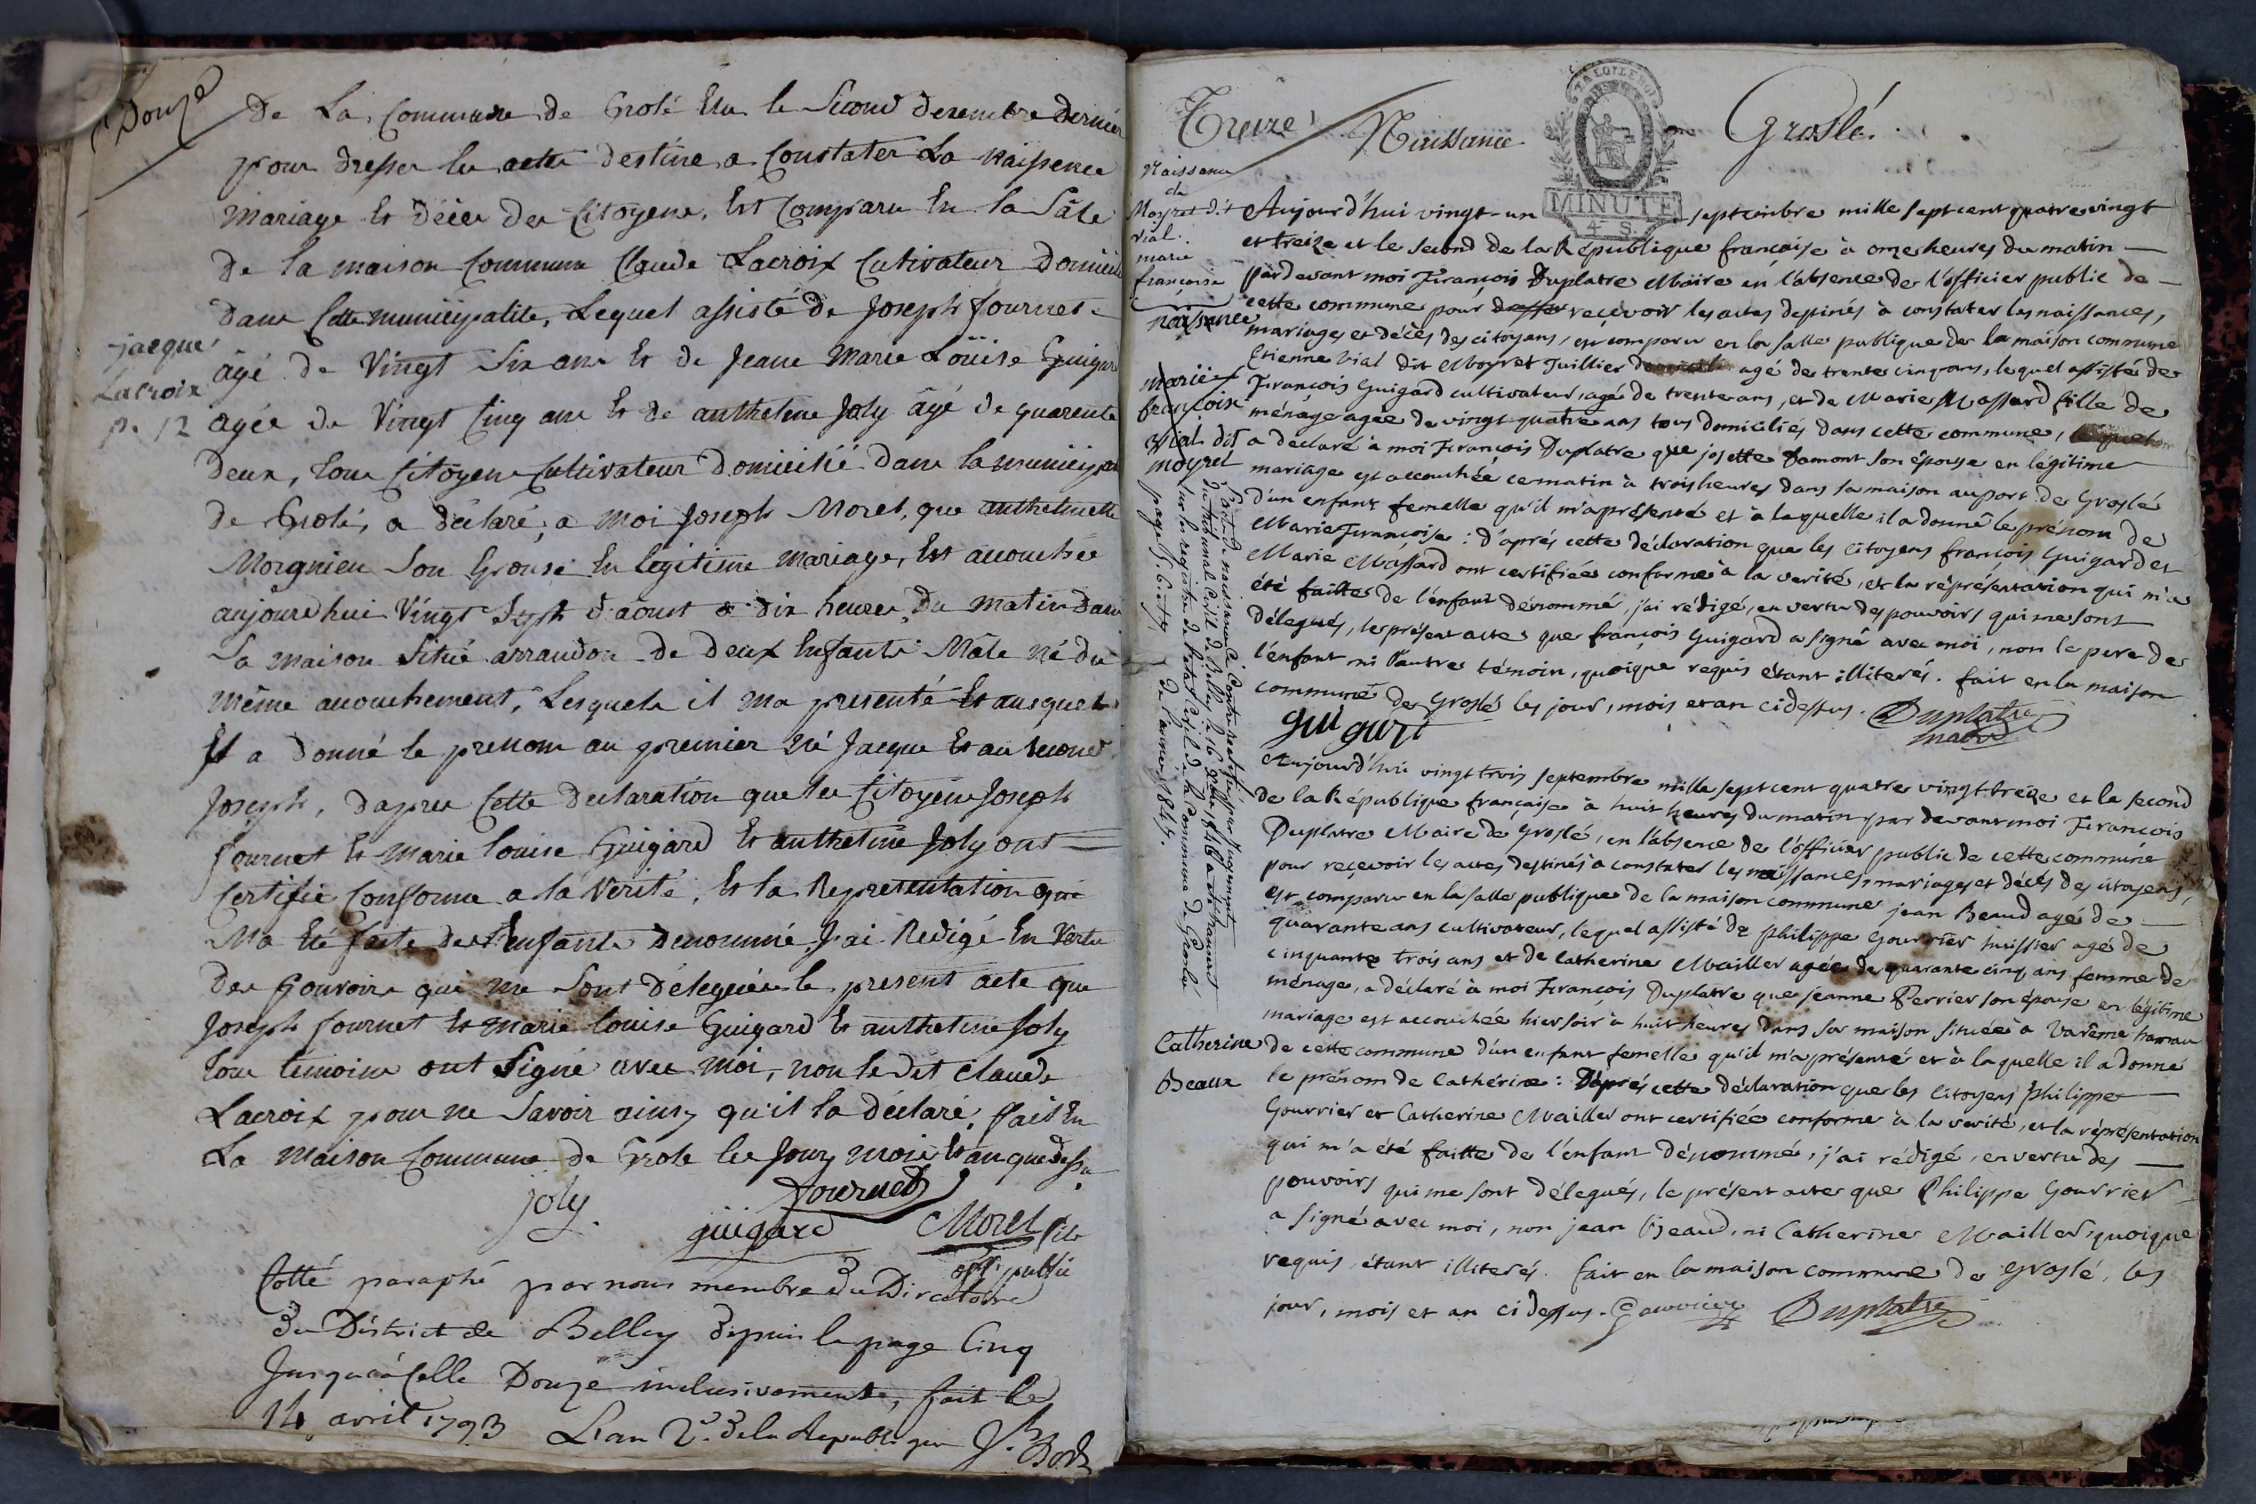 Douze
de La Commune de Grolé Elu le Second decembre dernier
pour dresser les actes destiné a Constater La Naissence
Mariage Et décès des Citoyens, Est Comparu En la Sâle
de la maison Commune Claude Lacroix Cultivateur Domicilié
dans Cette municipalité, Lequel assisté de Joseph fournet
jacque
Lacroix
p. 12
âgé de Vingt Six ans Et de Jeane Marie Loüise Guigard
agée de Vingt Cinq ans Et de anthelme Joly âgé de quarente
deux, tous Citoyens Cultivateur Domicilié dans la municipal
de Grolé, a déclaré, a moi Joseph Morel, que anthelmette
Morgnieu Son Epouse En legitime mariage, Est accouchée
aujourdhui Vingt Sept d'aoust a dix heures, Du Matin dans
Sa maison Situé arrandon de deux Enfants Mâle Né du
même accouchement, Lesquels il ma presenté Et ausquels
Il a donné le prenom au premier Né Jacque Et au second
Joseph, dapres Cette declaration que les Citoyens Joseph
fournet Et Marie louise Guigard Et anthelme Joly ont
Certifié Conforme a la Verité, Et la Representation qui
Ma Eté faite des Enfants Denommé, J'ai Redigé En Vertu
des pouvoirs qui me Sont Délegués le present acte que
Joseph fournet Et Marie louise Guigard Et anthelme Joly
tous temoins ont Signé avec Moi, non le dit Claude
Lacroix pour ne Savoir ainsy qu'il la déclaré, fait En
La Maison Commune de Grole les Jour Mois Et an que dessu
joly fournet
guigard Morel fils
off. public
Cotté paraphé par nous membre du Directoire
du District de Belley depuis la page Cinq
Jusqu'à Celle Douze inclusivement, fait le
14 avril 1793 L'an 2e. de la Republique
Treize Naissance Groslé.
LA LOI LE ROI
MINUTE
4 S.
Naissance
de
Moyret dit
Vial.
marie
françoise
Aujourd'hui vingt-un septembre mille sept cent quatre vingt
et treize et le second de la République française à onze heures du matin
pardevant moi François Duplatre Maire en l'absence de l'officier public de
cette commune pour recevoir les actes destinés à constater les naissances,
mariages et décès des citoyens, est comparu en la salle publique de la maison commune
Etienne Vial dit Moyret Tuillier agé de trente cinq ans, lequel assisté de
François Guigard cultivateur, agé de trente ans, et de Marie Massard fille de
ménage agée de vingt quatre ans tous domiciliés dans cette commune,
a déclaré à moi François Duplatre que josette Damont son épouse en légitime
mariage est accouchée ce matin à trois heures dans sa maison au port de Groslé
d'un enfant femelle qu'il m'a présenté et à laquelle il a donné le prénom de
Marie Françoise : d'après cette déclaration que les Citoyens françois Guigard et
Marie Massard ont certifiée conforme à la verité, et la réprésentation qui m'a
été faitte de l'enfant dénommé, j'ai rédigé, en vertu des pouvoirs qui me sont
délegués, le présent acte que françois Guigard a signé avec moi, non le pere de
l'enfant ni l'autre témoin, quoique requis étant illiterés. fait en la maison
commune de Groslé les jour, mois et an ci dessus. Duplatre
guigart maire
naissance
marie
françoise
Vial dit
moyret
L'acte de naissance ci Contre rectifié par Jugement
du tribunal Civil de Belley le 16 9bre 1846 a été transcrit
sur le registre de l'état Civil de la Commune de Groslée
de l'année 1847.
Aujourd'hui vingt trois septembre mille sept cent quatre vingt treize et le second
de la République française à huit heures du matin par devant moi François
Duplatre Maire de Groslé, en l'absence de l'officier public de cette commune
pour recevoir les actes destinés à constater les naissances, mariages et décès des citoyens,
est comparu en la salle publique de la maison commune jean Beaud agé de
quarante ans cultivateur, lequel assisté de philippe Gourrier huissier agé de
cinquante trois ans et de Catherine Mailler agée de quarante cinq ans femme de
ménage, a déclaré à moi François Duplatre que Jeanne Perrier son épouse en légitime
mariage est accouchée hier soir à huit heures dans sa maison située à Varême hameau
Catherine
Beaux
de cette commune d'un enfant femelle qu'il m'a présenté et à laquelle il a donné
le prénom de Cathérine : D'après cette déclaration que les Citoyens Philippe
Gourrier et Catherine Mailler ont certifiée conforme à la verité, et la réprésentation
qui m'a été faitte de l'enfant dénommé, j'ai rédigé, en vertu des
pouvoirs qui me sont délegués, le présent acte que Philippe Gourrier
a signé avec moi, non jean Beaud, ni Catherine Mailler, quoique
requis, étant illiterés. fait en la maison commune de Groslé, les
jour, mois et an ci dessus. Gourrier Duplatre